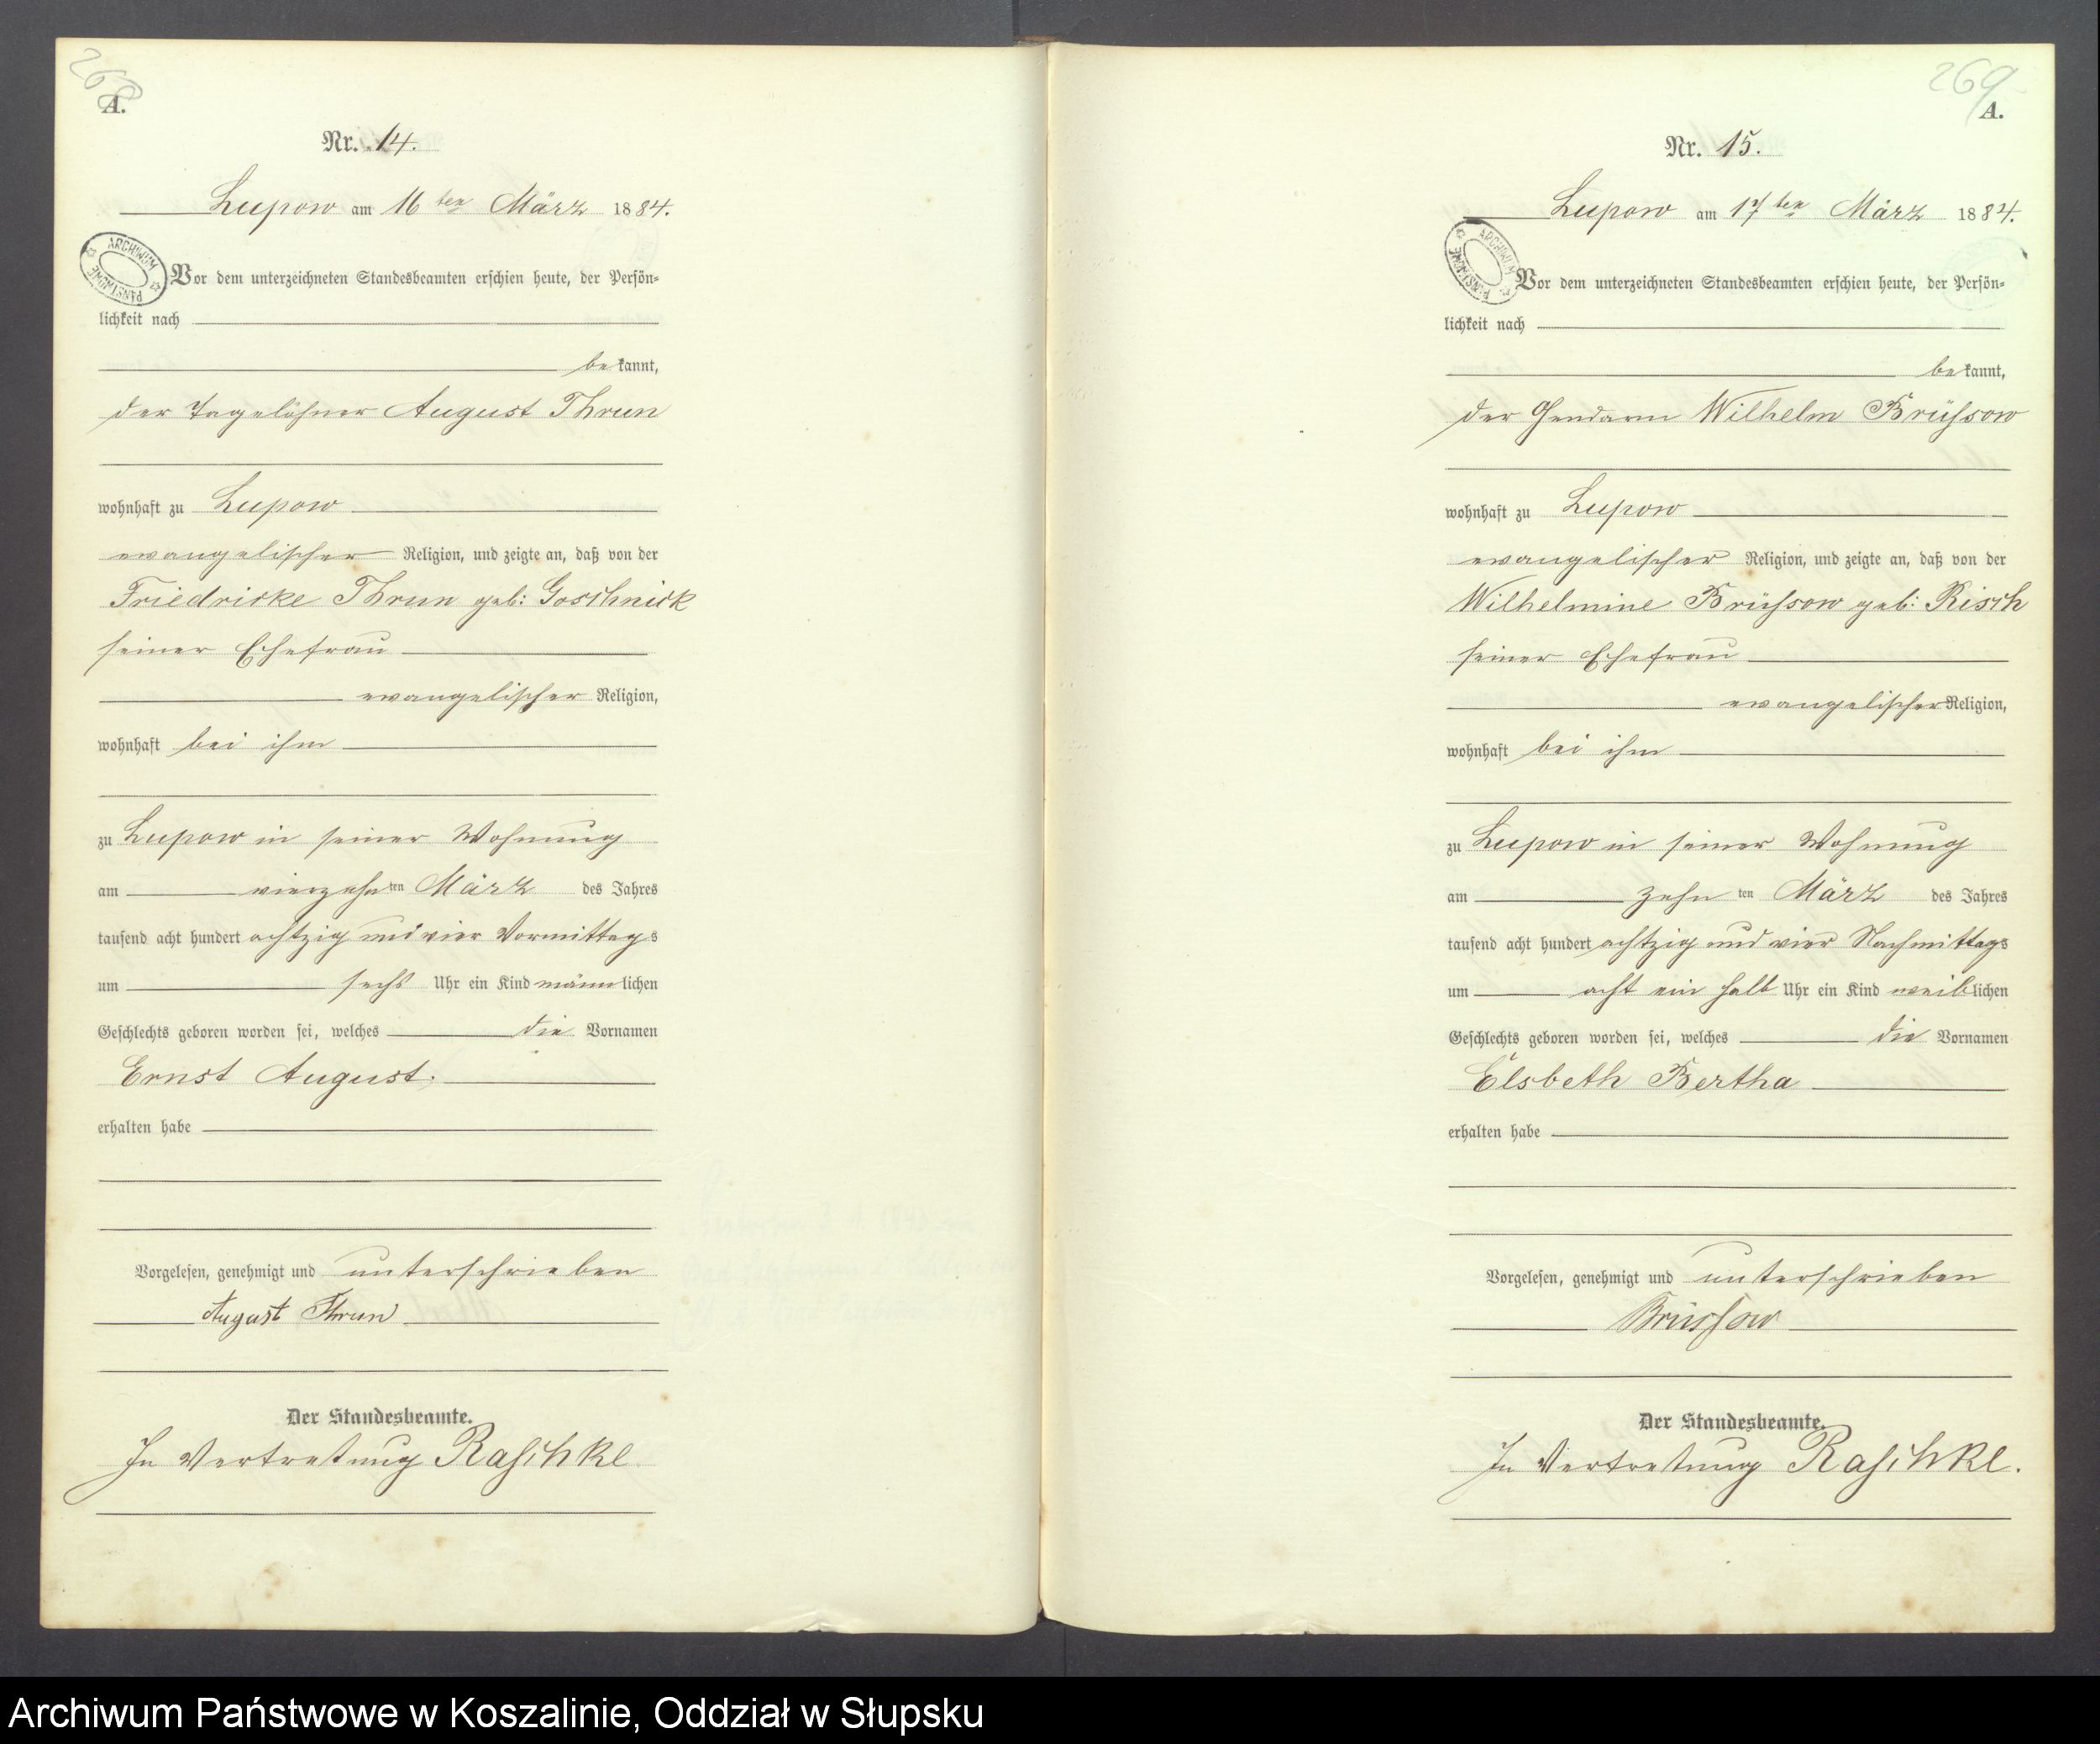 268
A.
Nr. 14.
Lupow am 16ten März 1884.
ARCHIWUM PAŃSTWOWE
Vor dem unterzeichneten Standesbeamten erschien heute, der Persön-
lichkeit nach
bekannt,
der Tagelöhner August Thrun
wohnhaft zu Lupow
evangelischer Religion, und zeigte an, daß von der
Friedricke Thrun geb: Goschnick
seiner Ehefrau
evangelischer Religion,
wohnhaft bei ihm
zu Lupow in seiner Wohnung
am vierzehnten März des Jahres
tausend acht hundert achtzig und vier Vormittags
um sechs Uhr ein Kind männlichen
Geschlechts geboren worden sei, welches die Vornamen
Ernst August.
erhalten habe
Vorgelesen, genehmigt und unterschrieben
August Thrun
Der Standesbeamte.
In Vertretung Raschke
269
A.
Nr. 15.
Lupow am 17ten März 1884.
ARCHIWUM PAŃSTWOWE
Vor dem unterzeichneten Standesbeamten erschien heute, der Persön-
lichkeit nach
bekannt,
der Gendarm Wilhelm Brüssow
wohnhaft zu Lupow
evangelischer Religion, und zeigte an, daß von der
Wilhelmine Brüssow geb: Risch
seiner Ehefrau
evangelischer Religion,
wohnhaft bei ihm
zu Lupow in seiner Wohnung
am zehnten März des Jahres
tausend acht hundert achtzig und vier Nachmittags
um acht ein halb Uhr ein Kind weiblichen
Geschlechts geboren worden sei, welches die Vornamen
Elsbeth Bertha
erhalten habe
Vorgelesen, genehmigt und unterschrieben
Brüssow
Der Standesbeamte.
In Vertretung Raschke.
Archiwum Państwowe w Koszalinie, Oddział w Słupsku